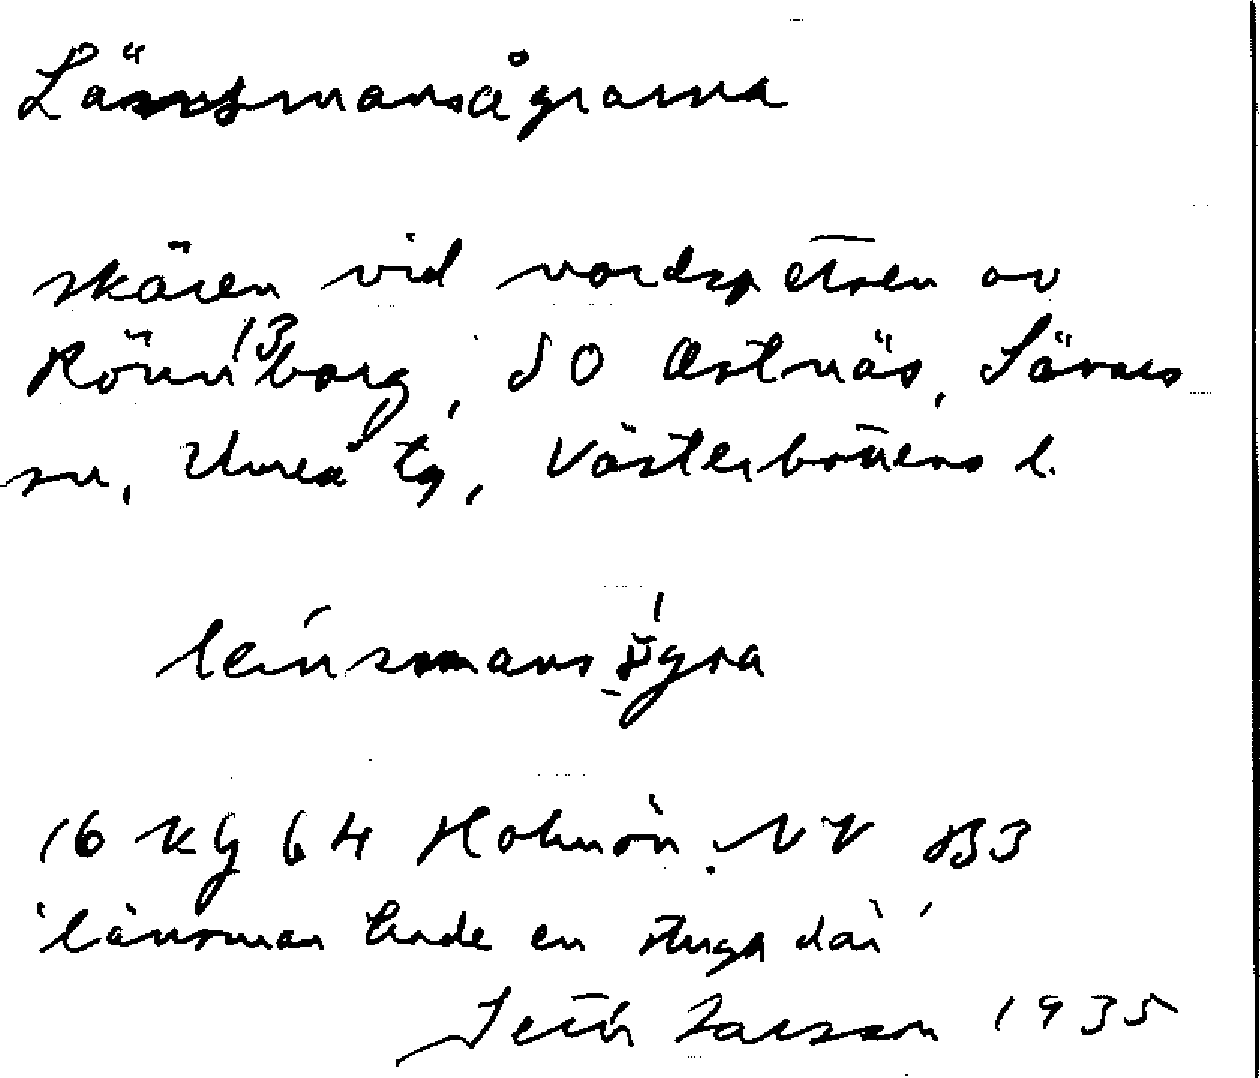 Länsmansågrarna
skären vid nordspetsen av
Rönnborg, SO Ostnäs, Sävars
sn, Umeå tg, Västerbottens l.
16 Kg 64 Holmön. NV B3
'länsman hade en stuga där'
Larsson 1935